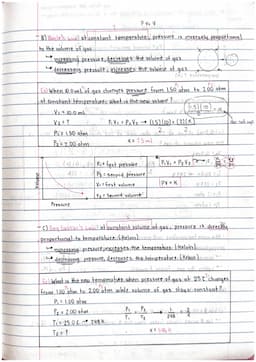 B) Boyle's Law: at constant temperature, pressure is inversely proportional
to the volume of gas
↳ increasing pressure, decreases the volume of gas
↳ decreasing pressure, increases the volume of gas
When 10.0 mL of gas changes pressure from 1.50 atm to 2.00 atm
at constant temperature, what is the new volume?
V₁ = 10.0 mL
V₂ = ?
P₁V₁ = P₂V₂ → (1.5)(10) = (2)(x)
P₁ = 1.50 atm
P₂ = 2.00 atm
P₁ = first pressure
P₁V₁ = P₂V₂
P₂ = second pressure
V₁ = first volume
PV = K
V₂ = second volume
Volume
Pressure
pressure is directly
proportional to temperature (Kelvin)
↳ increasing pressure, increases the temperature (Kelvin)
↳ decreasing pressure, decreases the temperature (Kelvin)
What is the new temperature when pressure of gas at 25°C changes
from 1.00 atm to 2.00 atm while volume of gas stays constant?
P₁ = 1.00 atm
P₂ = 2.00 atm
T₁ = 25.0°C → 298 K
T₂ = ?